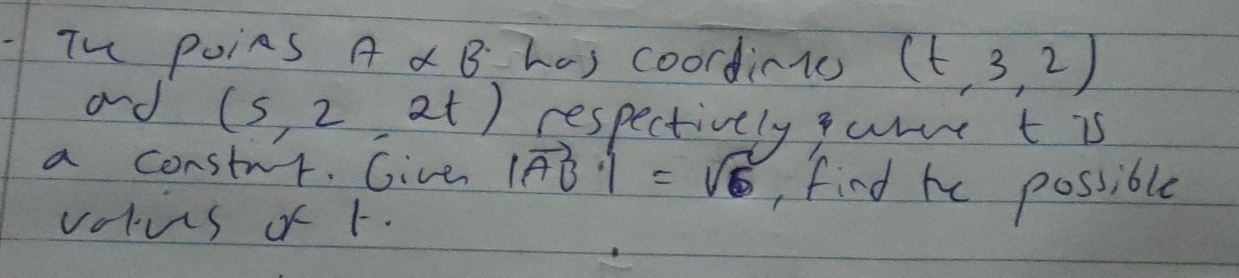 - The poins A & B has coordinates (t, 3, 2)
and (5, 2, 2t) respectively, where t is
a constant. Given |AB| = √6, find the possible
values of t.